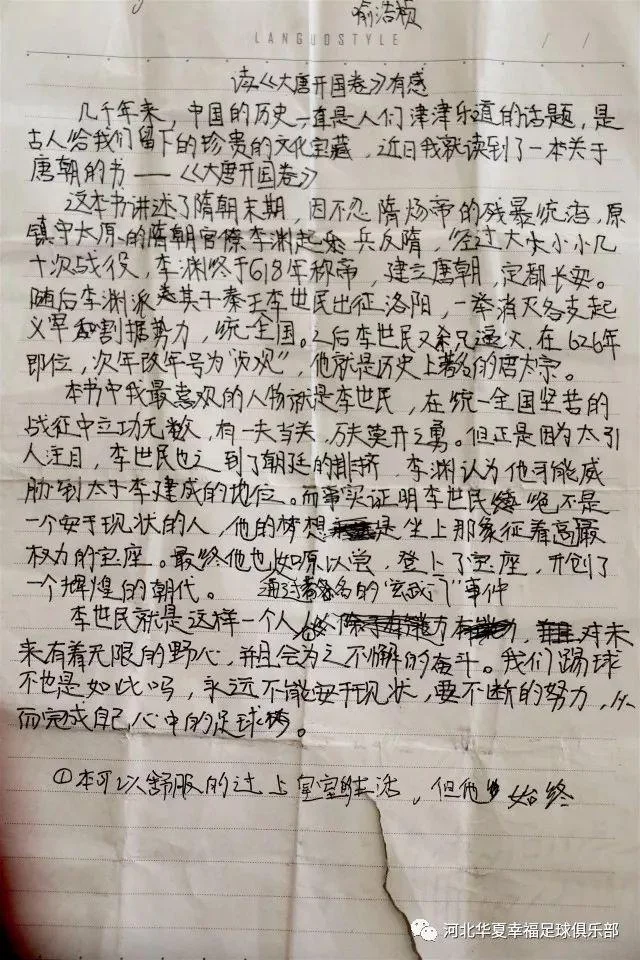 喻浩桢
LANGUOSTYLE / /
读《大唐开国卷》有感
几千年来，中国的历史一直是人们津津乐道的话题，是
古人给我们留下的珍贵的文化宝藏，近日我就读到了一本关于
唐朝的书——《大唐开国卷》
这本书讲述了隋朝末期，因不忍隋炀帝的残暴统治，原
镇守太原的隋朝官僚李渊起兵反隋，经过大大小小几
十次战役，李渊终于618年称帝，建立唐朝，定都长安。
随后李渊派其子秦王李世民出征洛阳，一举消灭各支起
义军和割据势力，统一全国。之后李世民又杀兄逼父，在626年
即位，次年改年号为"贞观"，他就是历史上著名的唐太宗。
本书中我最喜欢的人物就是李世民，在统一全国坚苦的
战征中立功无数，有一夫当关，万夫莫开之勇。但正是因为太引
人注目，李世民也之到了朝廷的排挤，李渊认为他可能威
胁到太子李建成的地位。而事实证明李世民绝不是
一个安于现状的人，他的梦想是坐上那象征着高最
权力的宝座。最终他也如原以尝，登上了宝座，开创了
一个辉煌的朝代。 通过著名的"玄武门"事件
李世民就是这样一个人，对未
来有着无限的野心，并且会为之不懈的奋斗。我们踢球
不也是如此吗，永远不能安于现状，要不断的努力，从
而完成自己心中的足球梦。
①本可以舒服的过上皇室生活，但他始终
河北华夏幸福足球俱乐部